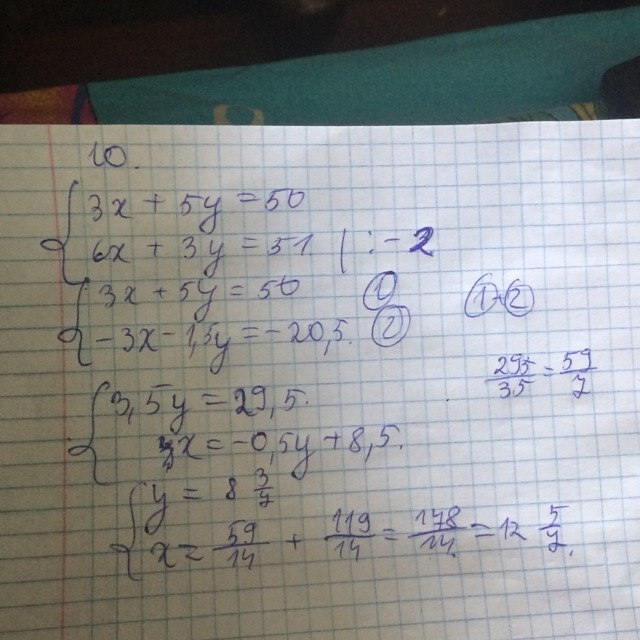 10.
3x + 5y = 50
6x + 3y = 51 | :-2
3x + 5y = 50 ①
-3x - 1,5y = -20,5. ②
①+②
3,5y = 29,5.
295/35 = 59/7
3x = -0,5y + 8,5.
y = 8 3/7
x = 59/14 + 119/14 = 178/14 = 12 5/7.